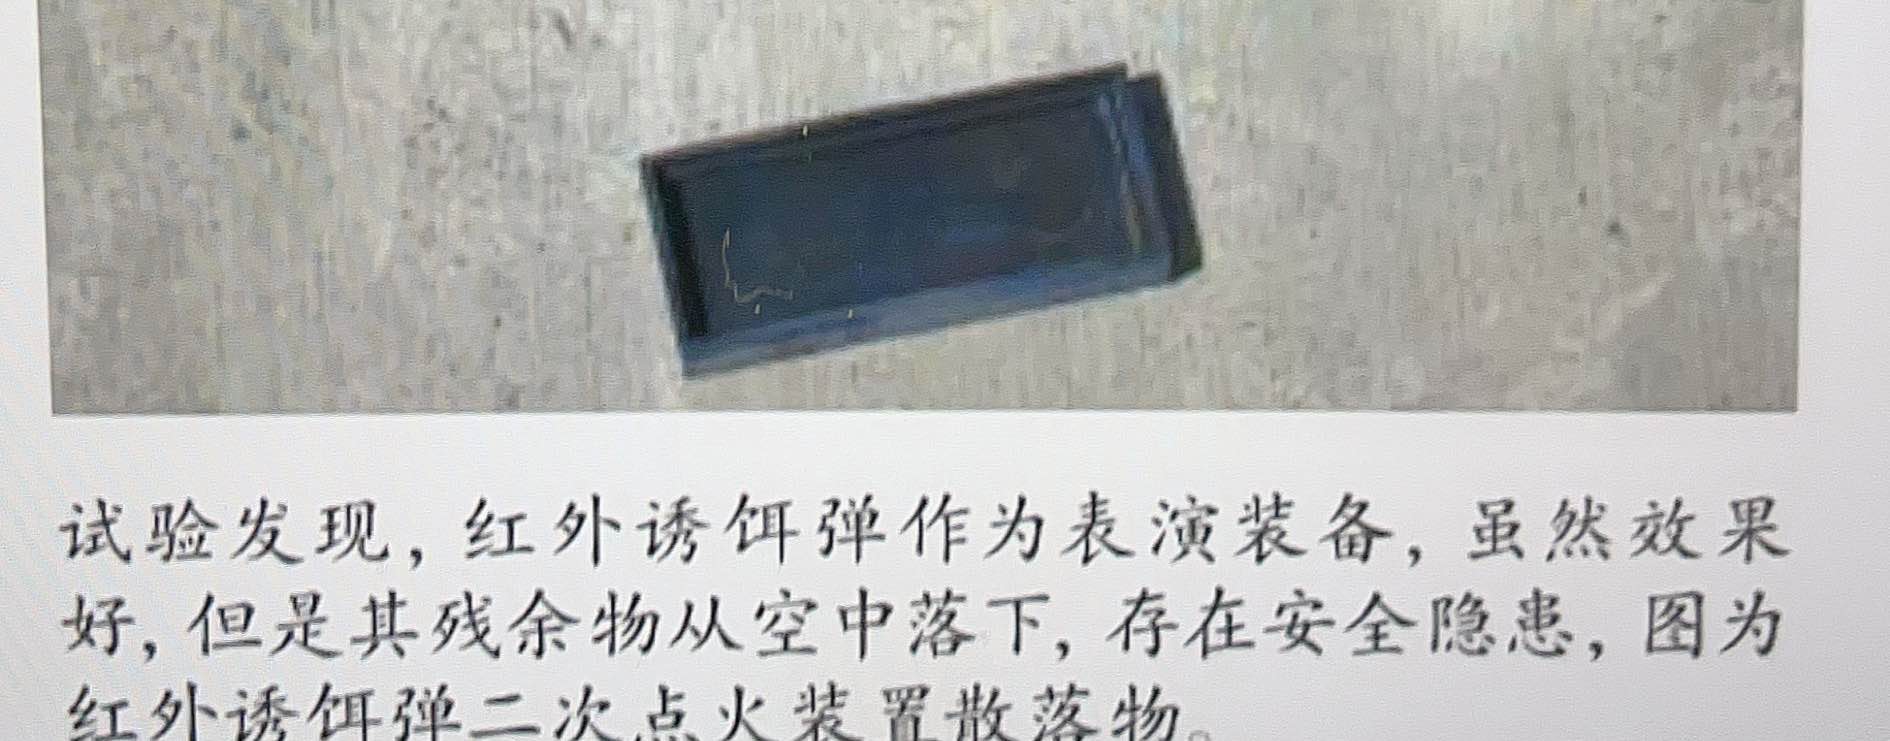 试验发现，红外诱饵弹作为表演装备，虽然效果
好，但是其残余物从空中落下，存在安全隐患，图为
红外诱饵弹二次点火装置散落物。